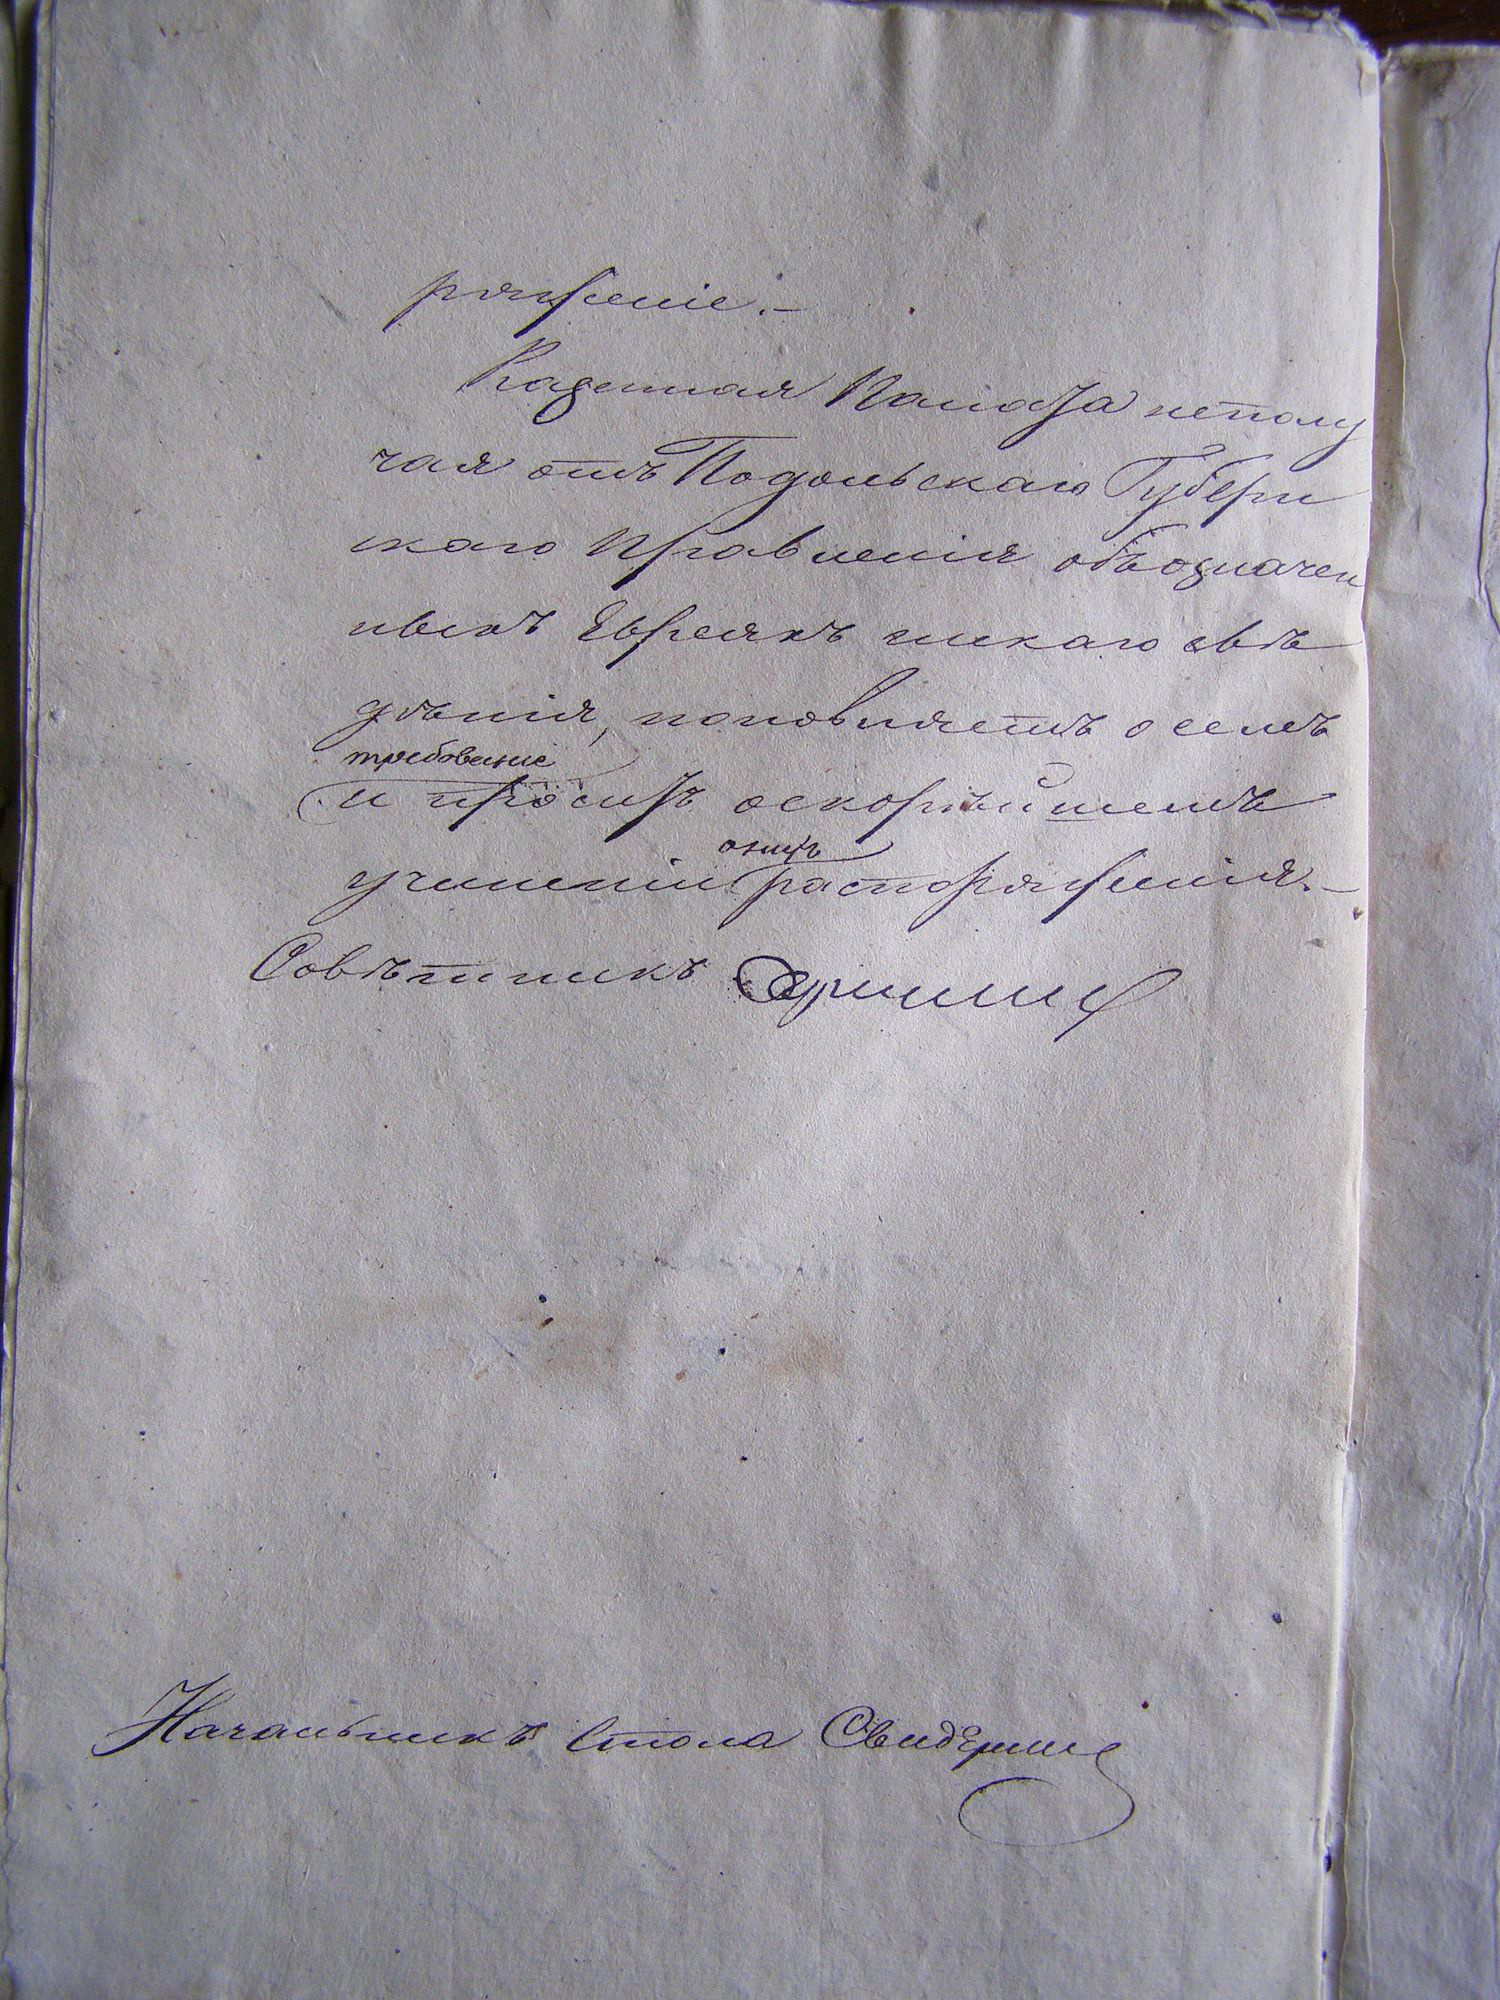 ряженіе.—
Казенная Палата неполу
чая отъ Подольскаго Губерн
скаго Правленія объозначен
ныхъ Евреяхъ никакого свѣ
дѣнія, поновляетъ о семъ
требованіе
и проситъ оскорѣйшемъ
онихъ
учиненіи распоряженія.—
Совѣтникъ
Начальникъ Стола Свидерскій